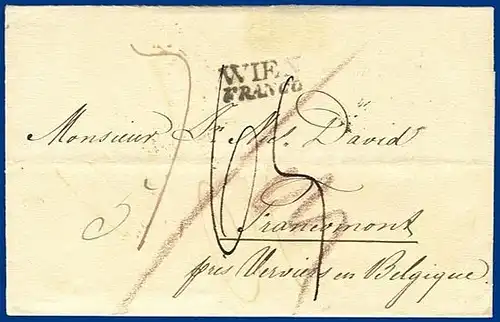 WIEN
FRANCO
Monsieur Fr. Nic. David
Francomont
près Verviers en Belgique